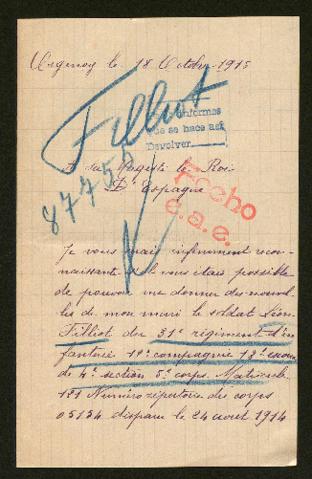 Argenoy le 18 Octobre 1915
Filliot
87750
informes
que se hace así
Devolver
A sa Majesté le Roi
D'Espagne
Fecho
e.a.e.
Je vous serais infiniment recon-
naissante s'il vous était possible
de pouvoir me donner des nouvel-
les de mon mari le soldat Léon
Filliot du 31e régiment d'in
fanterie 19e compagnie
de 4e section 5e corps. Matricule
Numéro répertoire du corps
05154 disparu le 24 aout 1914